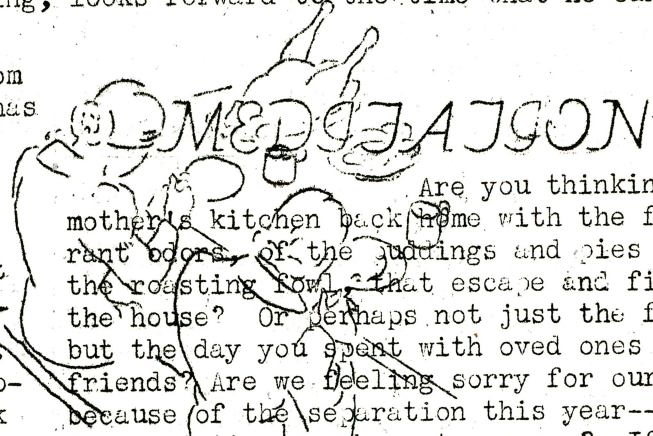 ng, looks forward to the time that he
om
has
MEDITATION
Are you thinkin
mother's kitchen back home with the f
rant odors, of the puddings and pies
the roasting fowl, that escape and fi
the house? Or perhaps not just the f
but the day you spent with oved ones
friends? Are we feeling sorry for our
because of the separation this year--